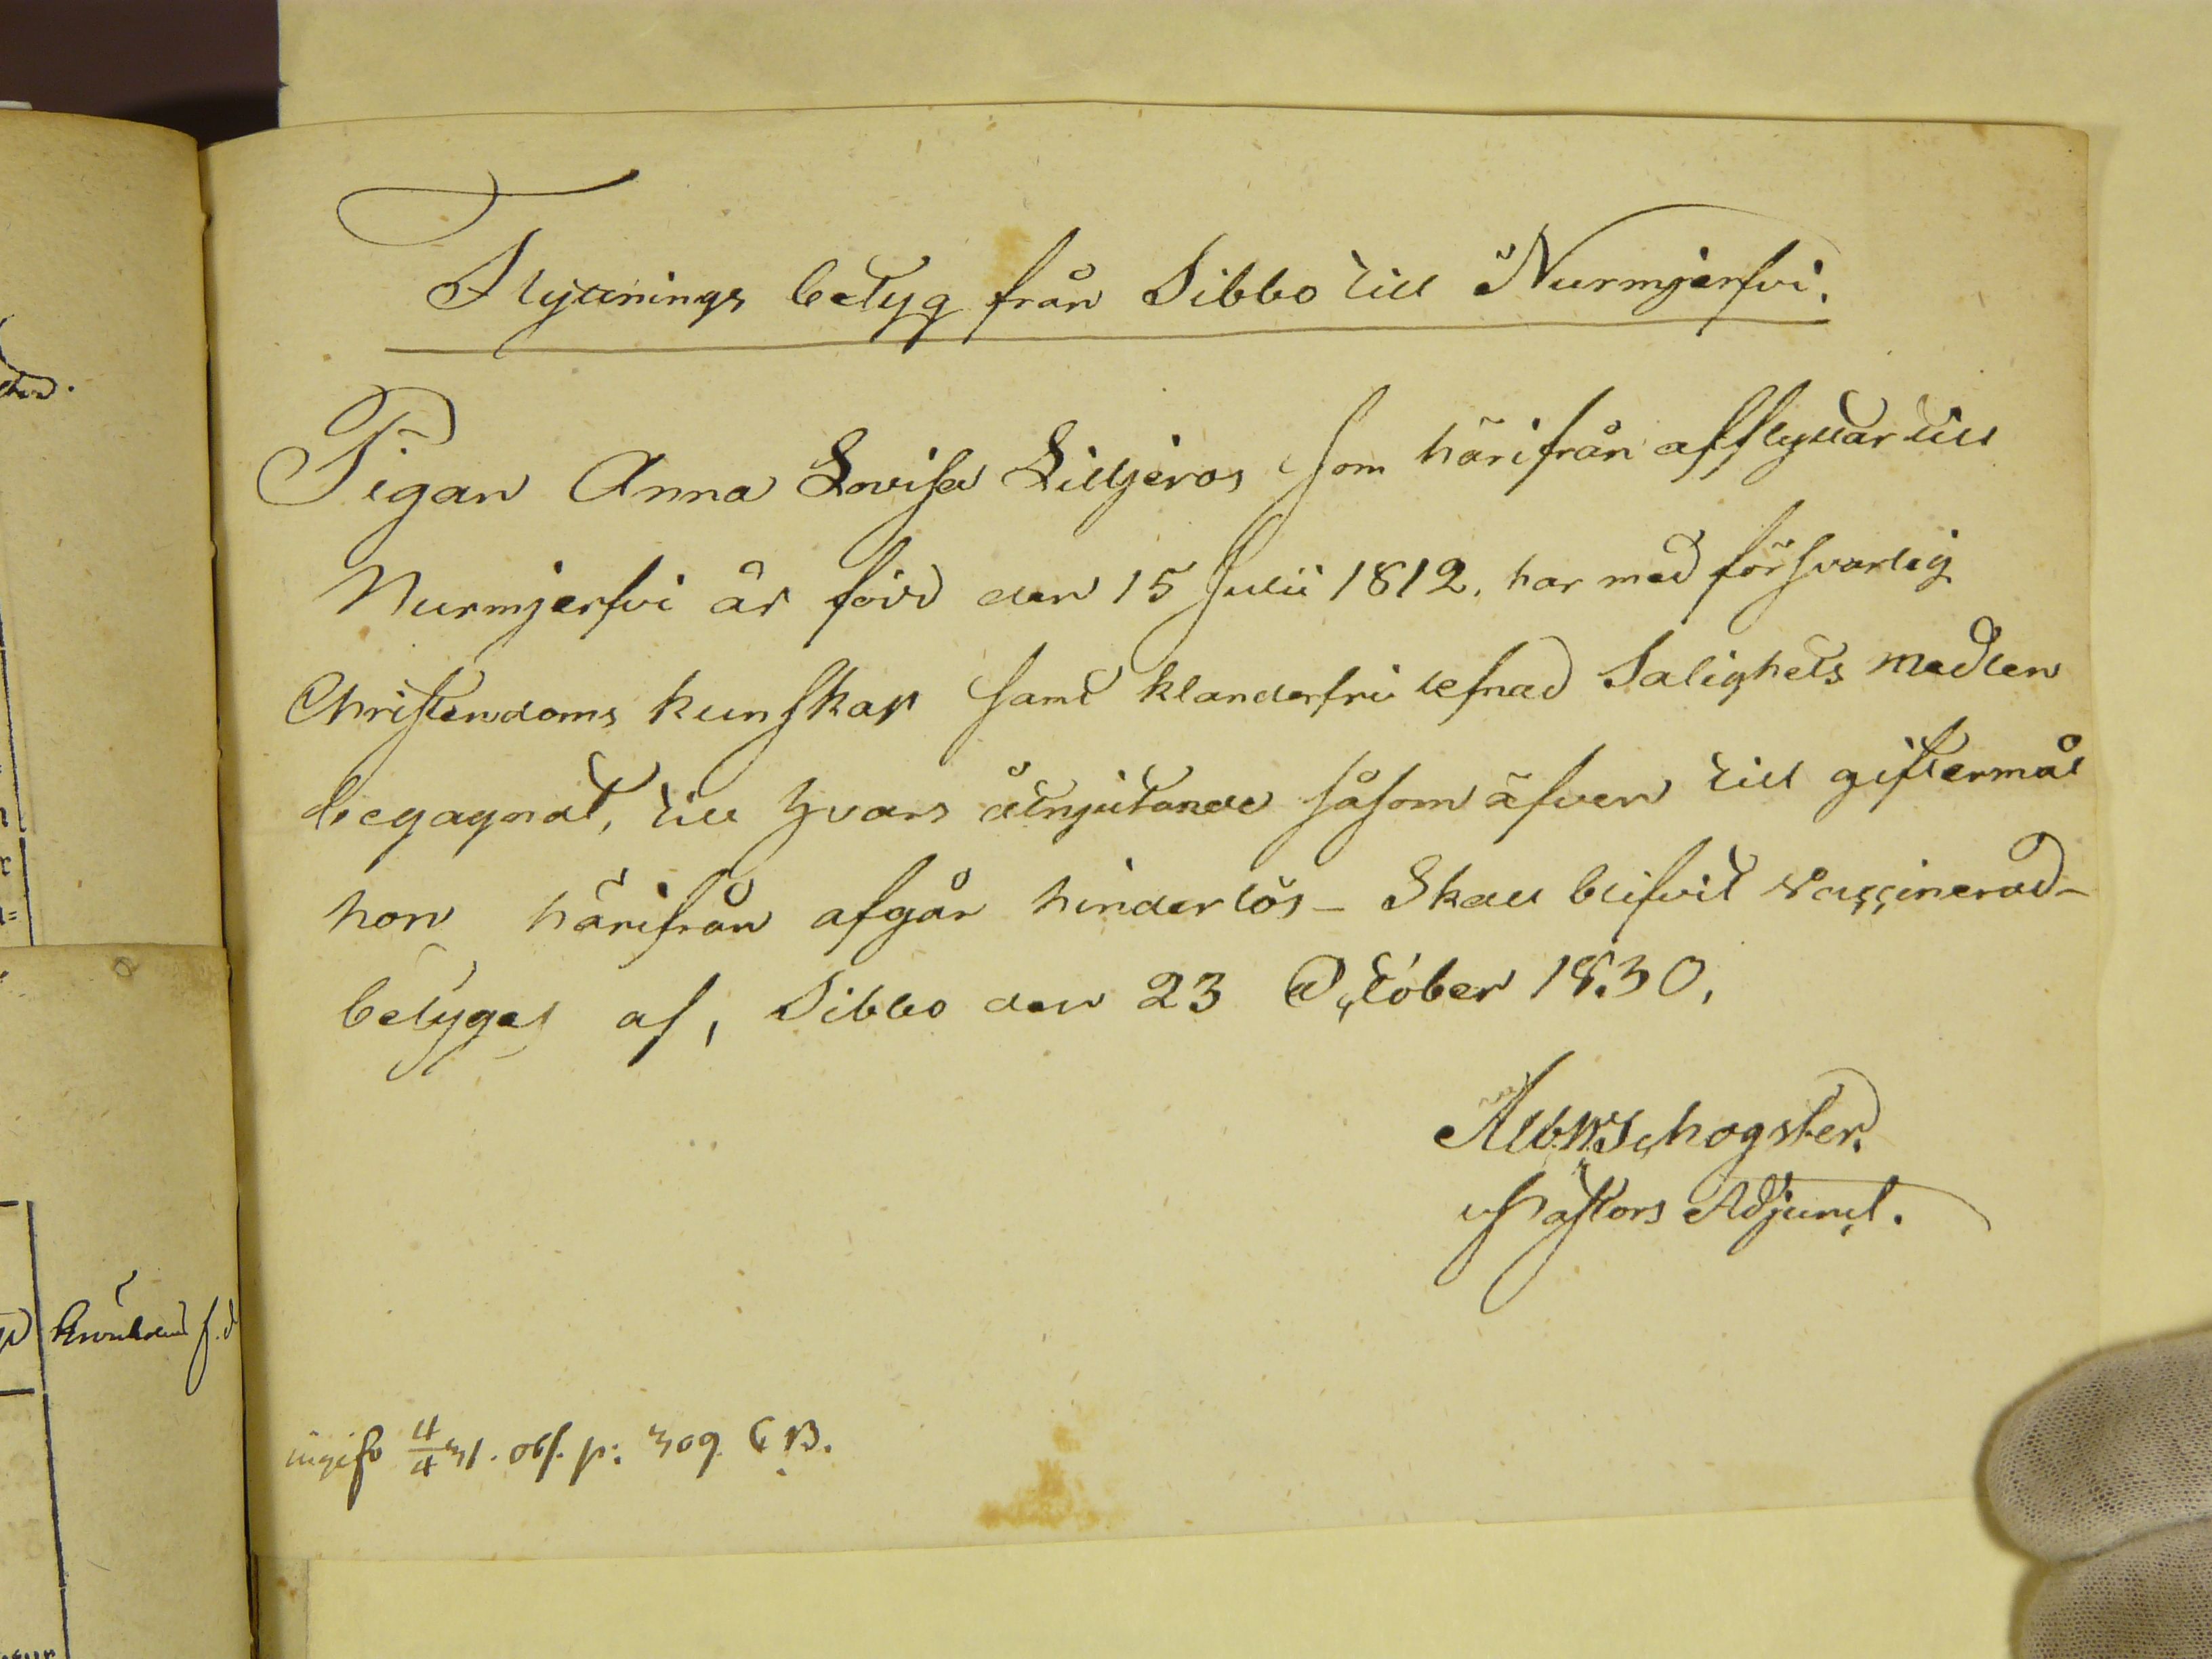 Flyttnings betyg från Sibbo till Nurmjerfvi.
Pigan Anna Lovisa Liljeros som härifrån afflyttar till
Nurmjerfvi är född den 15 Julii 1812, har med försvarlig
Christendoms kunskap samt klanderfri lefnad Salighets medlen
begagnat, till hvars åtnjutande såsom äfven till giftermål
hon härifrån afgår hinderlös - Skall blifvit vaccinerad -
betygas af, Sibbo den 23 October 1830.
Schogster.
Pastors Adjunct.
ingifv 4/4 31. p: 309 C B.